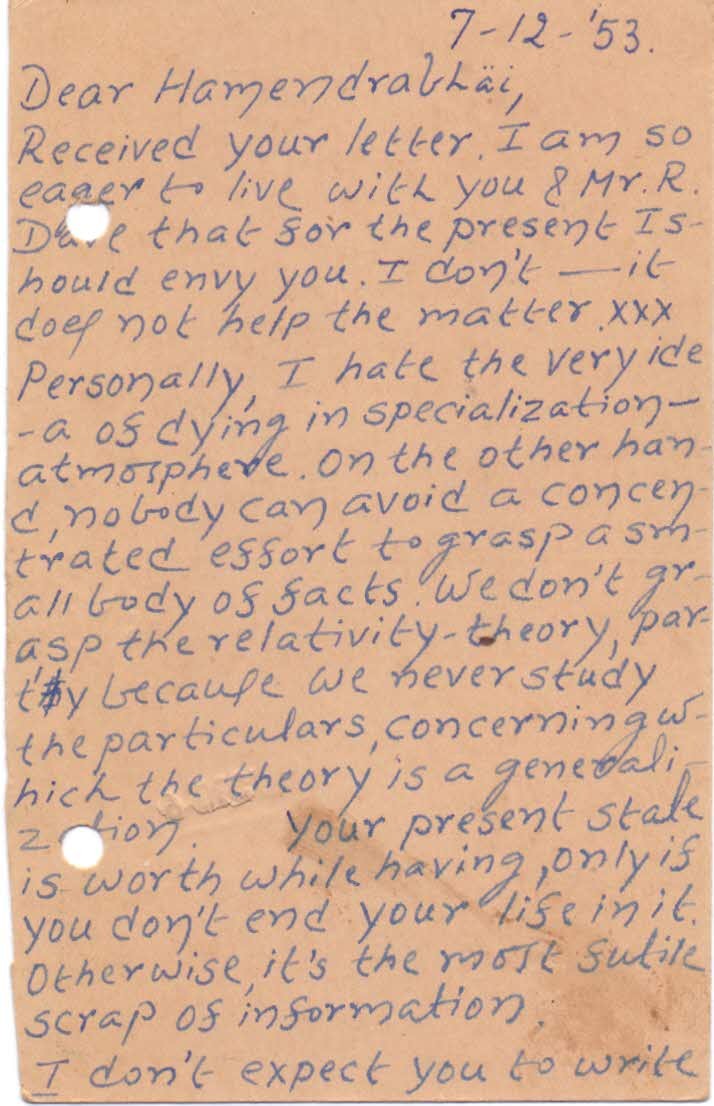 7-12-'53.
Dear Hamendrabhäi,
Received your letter. I am so
eager to live with you & Mr. R.
Dave that for the present I s-
hould envy you. I don't — it
does not help the matter. xxx
Personally, I hate the very ide
-a of dying in specialization-
atmosphere. On the other han-
d, nobody can avoid a concen-
trated effort to grasp a sm-
all body of facts. We don't gr-
asp the relativity-theory, par-
tly because we never study
the particulars, concerning w-
hich the theory is a generali-
zation. Your present state
is worth while having, only if
you don't end your life in it.
Otherwise, it's the most futile
scrap of information.
I don't expect you to write